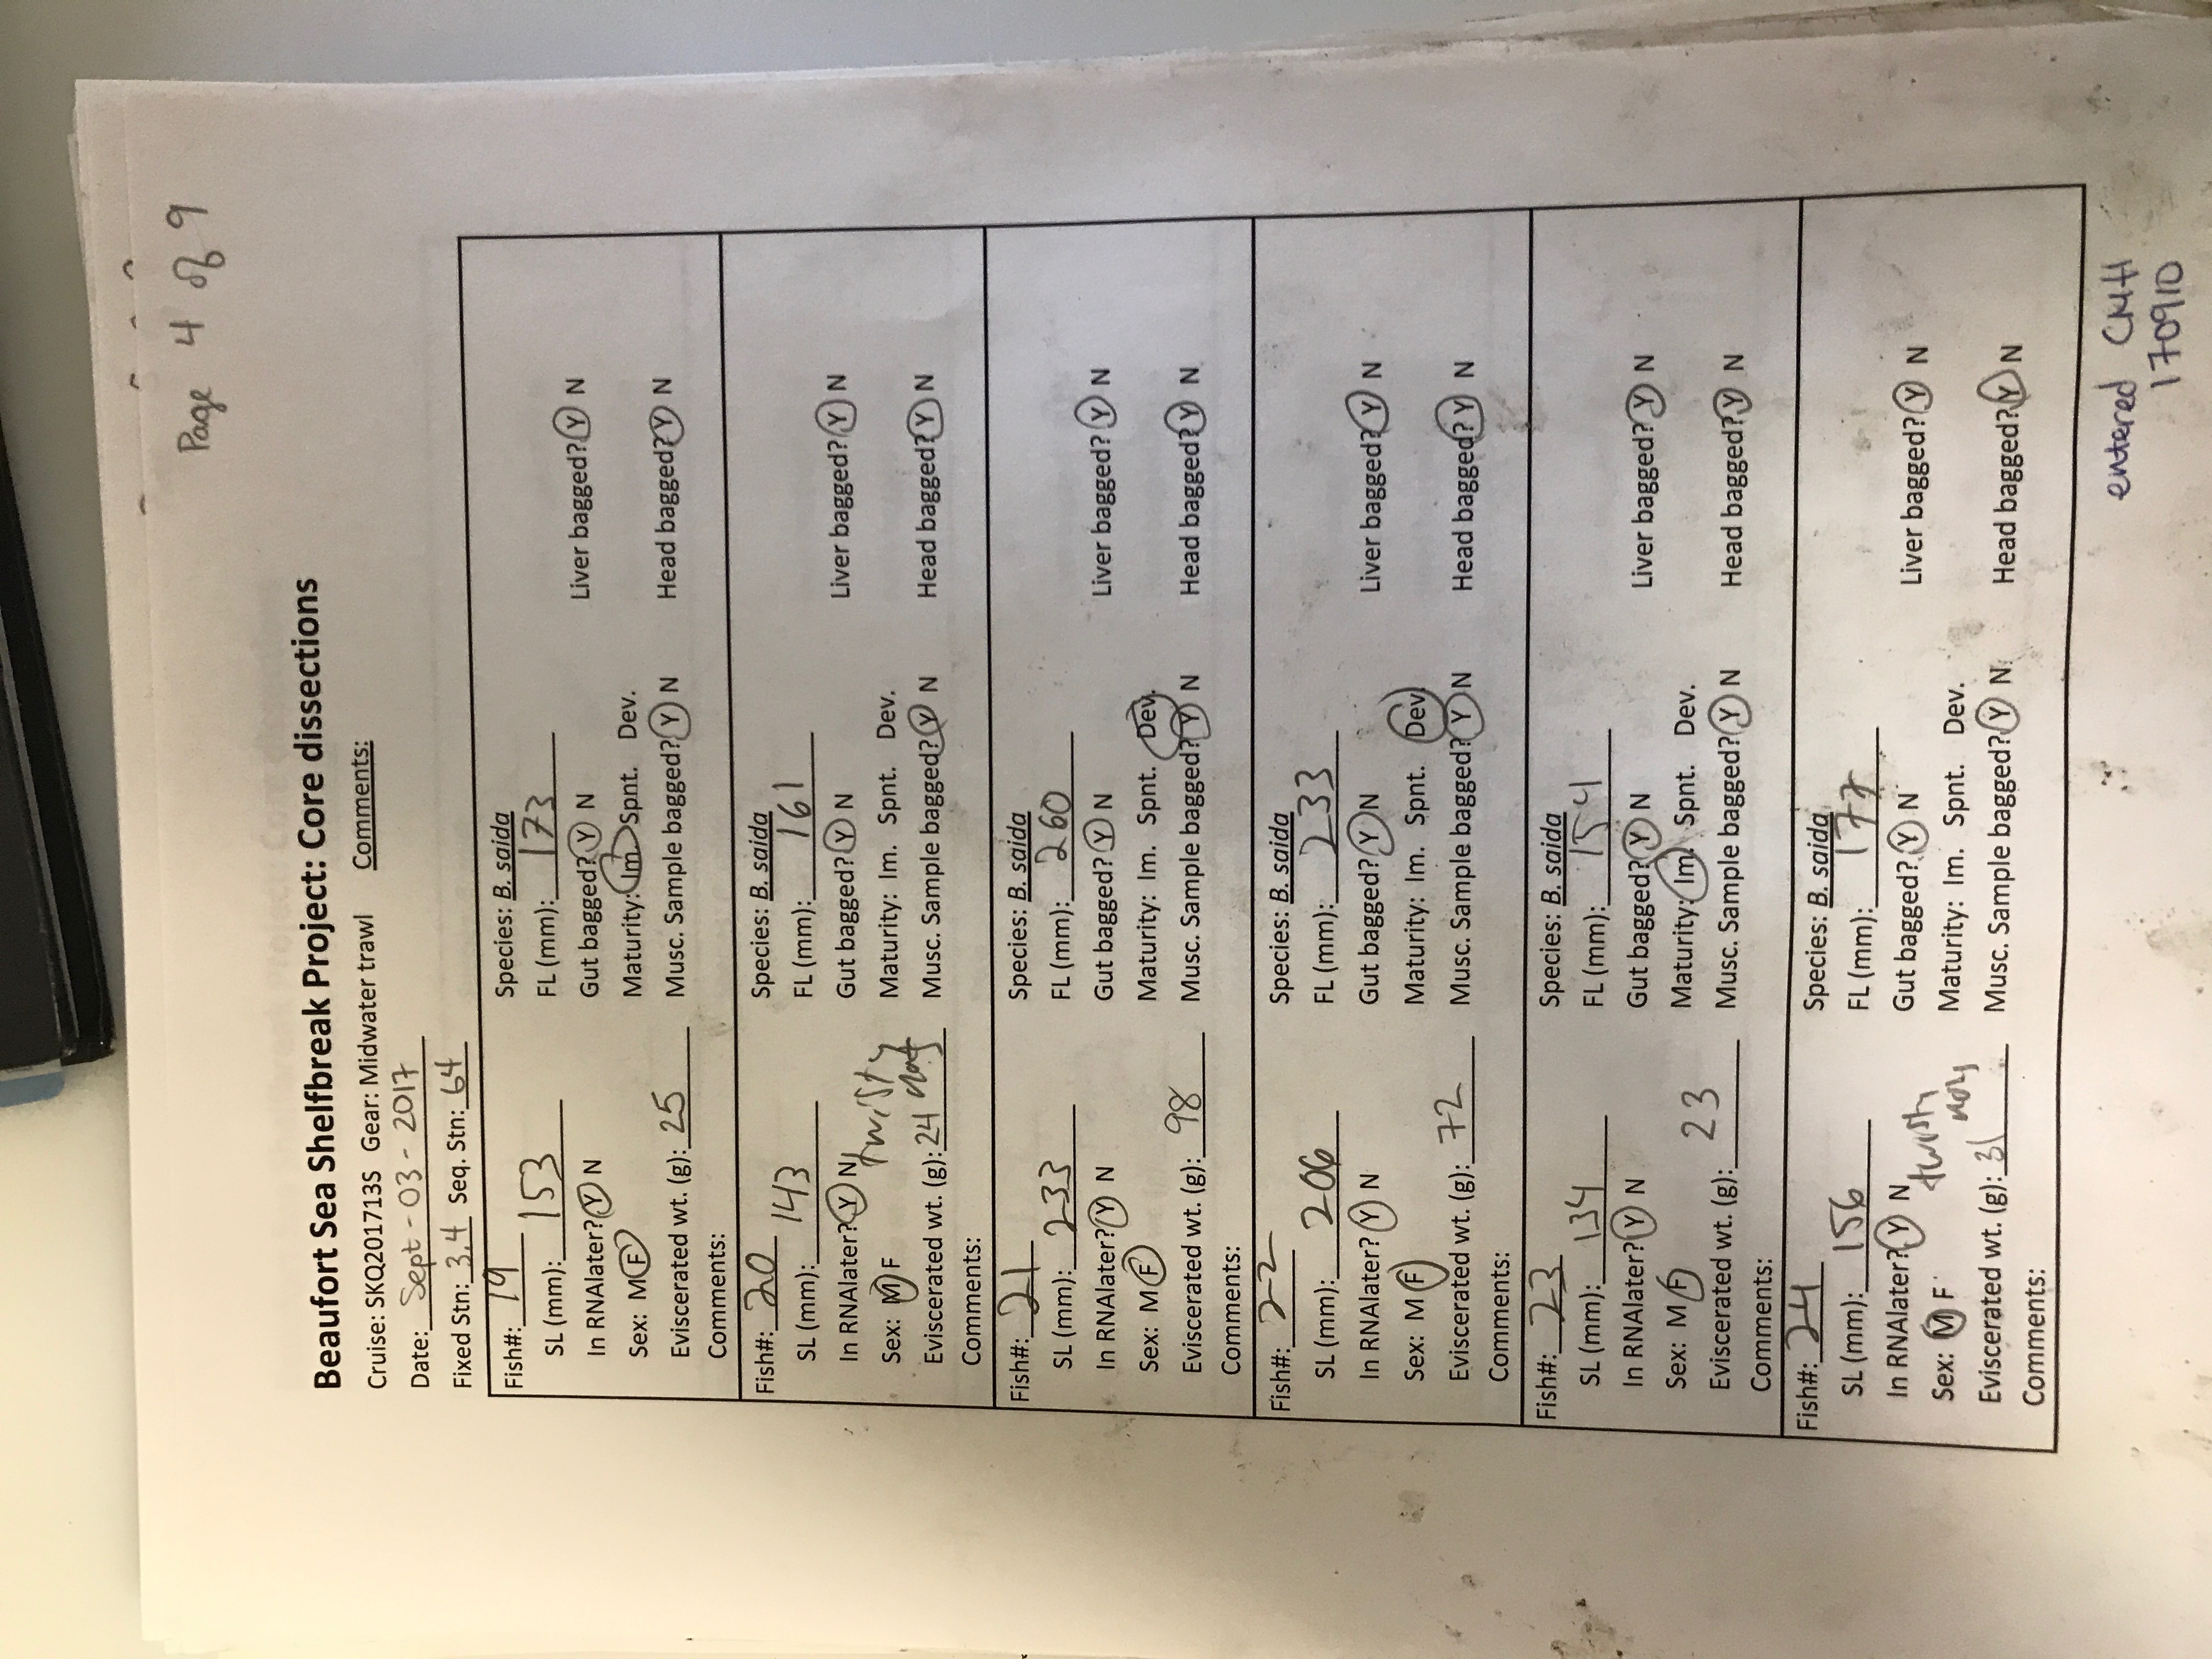 Page 4 of 9
Beaufort Sea Shelfbreak Project: Core dissections
Cruise: SKQ201713S Gear: Midwater trawl Comments:
Date: Sept-03-2017
Fixed Stn: 3.4 Seq. Stn: 64
Fish#: 19 Species: B. saida
SL (mm): 153 FL (mm): 173
In RNAlater? Y N Gut bagged? Y N Liver bagged? Y N
Sex: M F Maturity: Im. Spnt. Dev.
Eviscerated wt. (g): 25 Musc. Sample bagged? Y N Head bagged? Y N
Comments:
Fish#: 20 Species: B. saida
SL (mm): 143 FL (mm): 161
In RNAlater? Y N Gut bagged? Y N Liver bagged? Y N
Sex: M F twisty Maturity: Im. Spnt. Dev.
Eviscerated wt. (g): 24 Musc. Sample bagged? Y N Head bagged? Y N
Comments:
Fish#: 21 Species: B. saida
SL (mm): 233 FL (mm): 260
In RNAlater? Y N Gut bagged? Y N Liver bagged? Y N
Sex: M F Maturity: Im. Spnt. Dev.
Eviscerated wt. (g): 98 Musc. Sample bagged? Y N Head bagged? Y N
Comments:
Fish#: 22 Species: B. saida
SL (mm): 206 FL (mm): 233
In RNAlater? Y N Gut bagged? Y N Liver bagged? Y N
Sex: M F Maturity: Im. Spnt. Dev.
Eviscerated wt. (g): 72 Musc. Sample bagged? Y N Head bagged? Y N
Comments:
Fish#: 23 Species: B. saida
SL (mm): 134 FL (mm): 154
In RNAlater? Y N Gut bagged? Y N Liver bagged? Y N
Sex: M F Maturity: Im. Spnt. Dev.
Eviscerated wt. (g): 23 Musc. Sample bagged? Y N Head bagged? Y N
Comments:
Fish#: 24 Species: B. saida
SL (mm): 156 FL (mm): 177
In RNAlater? Y N Gut bagged? Y N Liver bagged? Y N
Sex: M F twisty Maturity: Im. Spnt. Dev.
Eviscerated wt. (g): 31 Musc. Sample bagged? Y N Head bagged? Y N
Comments:
entered CMH
170910